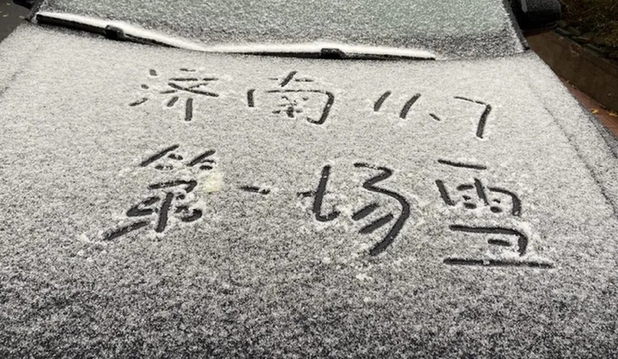 济南 11.7
第一场雪